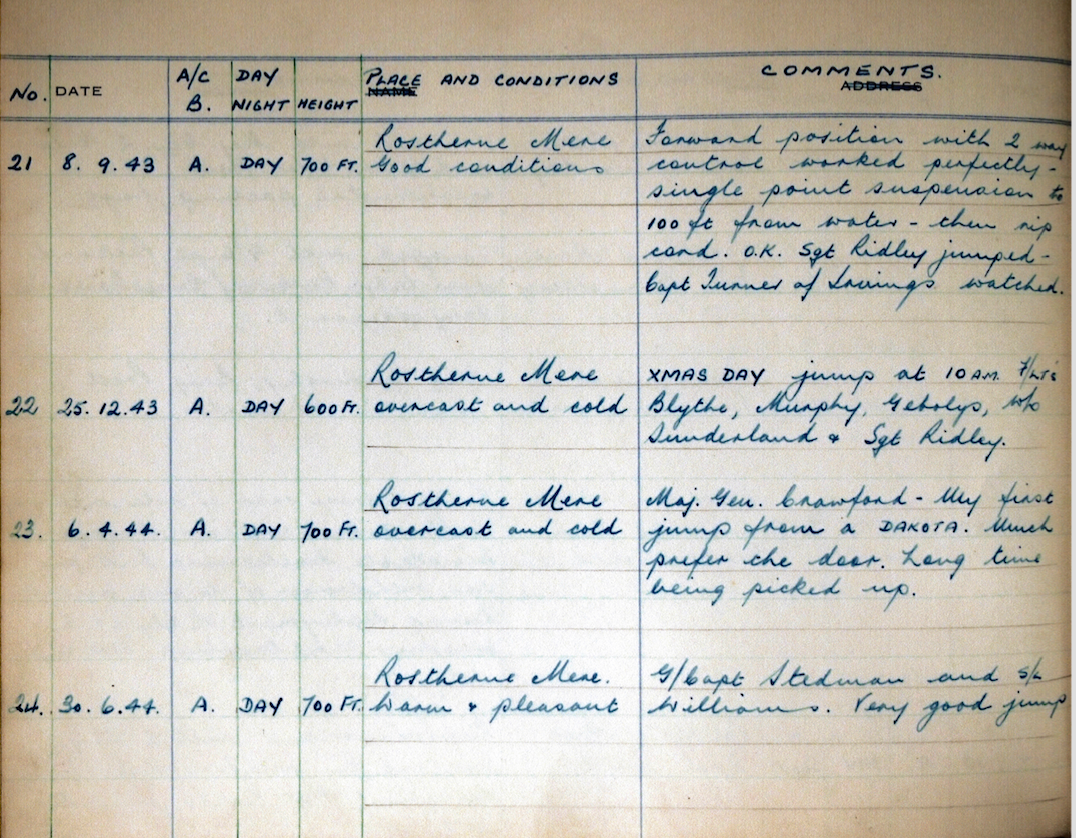 No. DATE A/C B. DAY NIGHT HEIGHT PLACE AND CONDITIONS COMMENTS.
NAME ADDRESS
21 8. 9. 43 A. DAY 700 FT. Rostherne Mere Forward position with 2 way
Good conditions control worked perfectly -
single point suspension to
100 ft from water - then rip
cord. O.K. Sgt Ridley jumped -
Capt Turner of Irvings watched.
22 25. 12. 43 A. DAY 600 FT. Rostherne Mere XMAS DAY jump at 10 A.M. F/Lts
overcast and cold Blythe, Murphy, Gebolys, W/O
Sunderland & Sgt Ridley.
23. 6. 4. 44. A. DAY 700 FT. Rostherne Mere Maj. Gen. Crawford - My first
overcast and cold jump from a DAKOTA. Much
prefer the door. Long time
being picked up.
24. 30. 6. 44. A. DAY 700 FT. Rostherne Mere. G/Capt Stedman and S/L
Warm & pleasant Williams. Very good jump